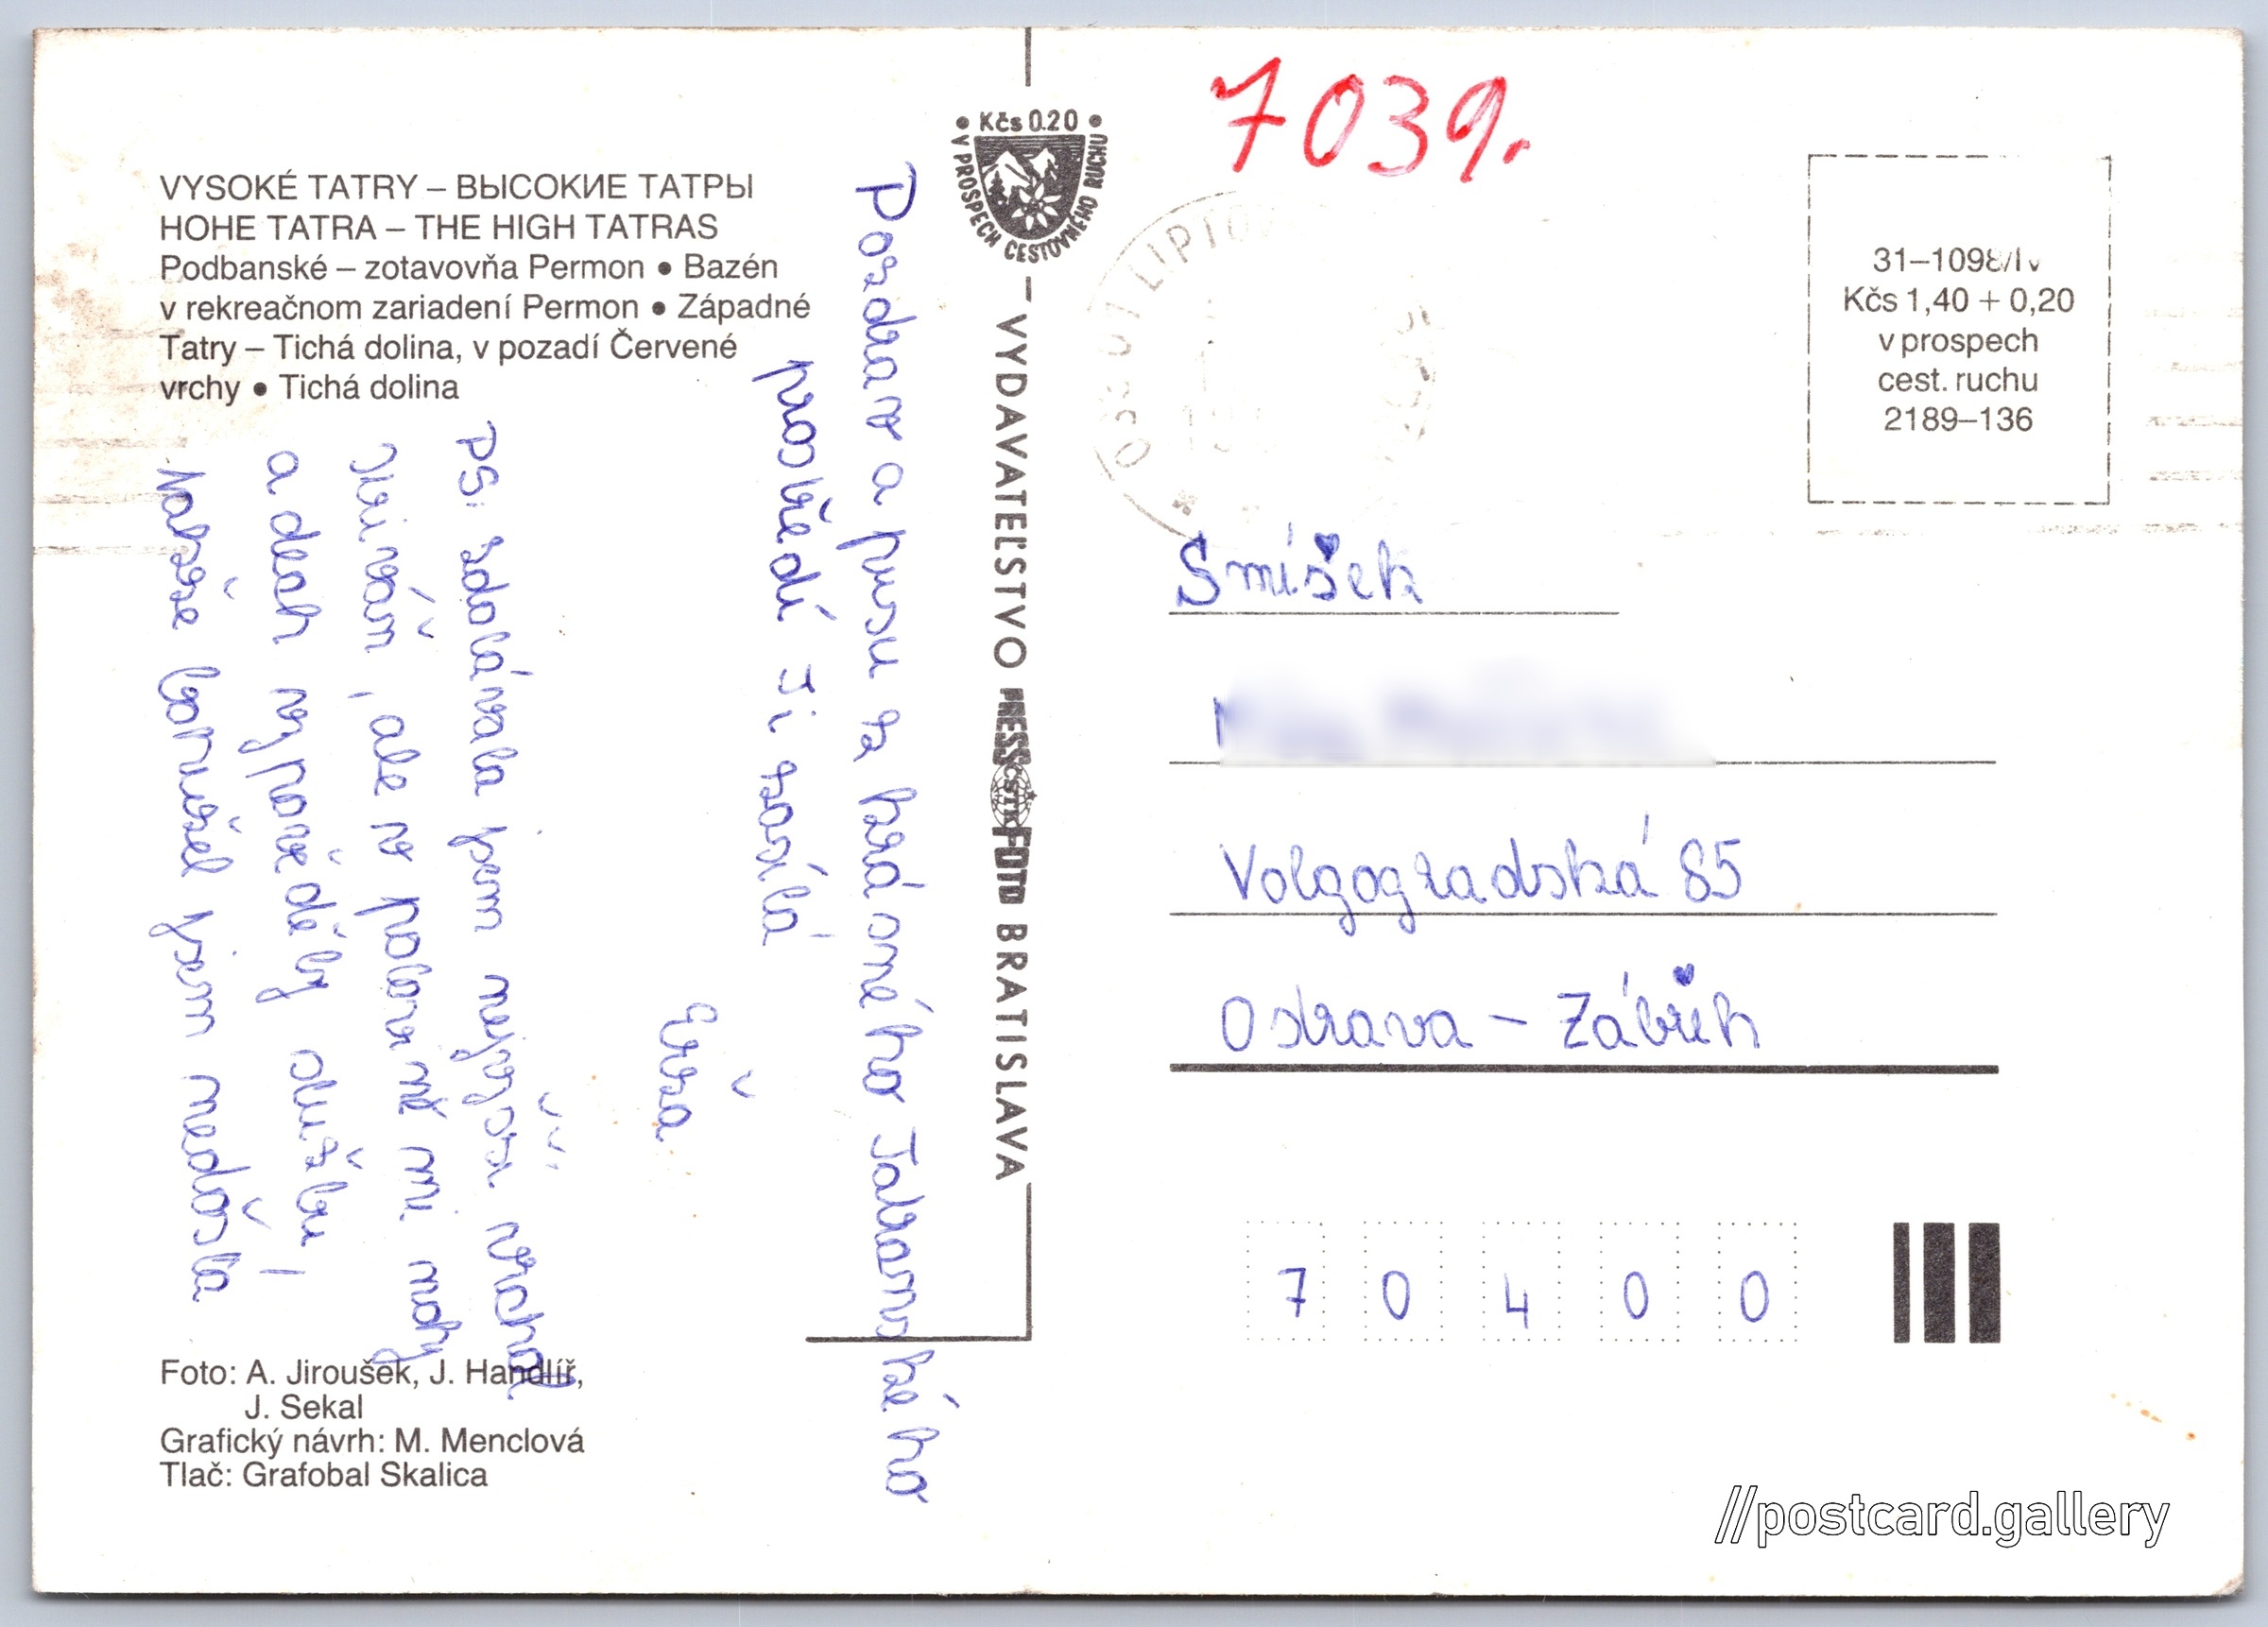 7039.
• Kčs 0.20 •
V PROSPECH CESTOVNÉHO RUCHU
VYSOKÉ TATRY – ВЫСОКИЕ ТАТРЫ
HOHE TATRA – THE HIGH TATRAS
Podbanské – zotavovňa Permon • Bazén
v rekreačnom zariadení Permon • Západné
Tatry – Tichá dolina, v pozadí Červené
vrchy • Tichá dolina
Pozdrav a pusu z krásného Tatranského
prostředí Ti zasílá
Evža
PS: Zdolávala jsem nejvyšší vrchol
Kriváň, ale v polovině mi nohy
a dech vypověděly službu,
Nahoře bohužel jsem nedošla
– VYDAVATEĽSTVO PRESSFOTO BRATISLAVA
ČSTK
LIPTOV
31–1098/IV
Kčs 1,40 + 0,20
v prospech
cest. ruchu
2189–136
Smíšek
Volgogradská 85
Ostrava – Zábřeh
7 0 4 0 0
Foto: A. Jiroušek, J. Handlíř,
J. Sekal
Grafický návrh: M. Menclová
Tlač: Grafobal Skalica
//postcard.gallery